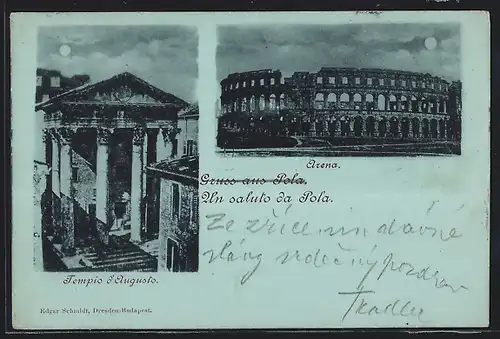 Arena.
Gruss aus Pola.
Un saluto da Pola.
Ze zřícenin dávné
slávy srdečný pozdrav
Tempio d'Augusto.
Edgar Schmidt, Dresden-Budapest.